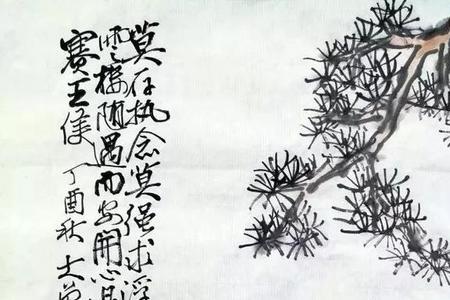 莫存执念莫强求浮
随遇而安开心
赛王侯 丁酉秋